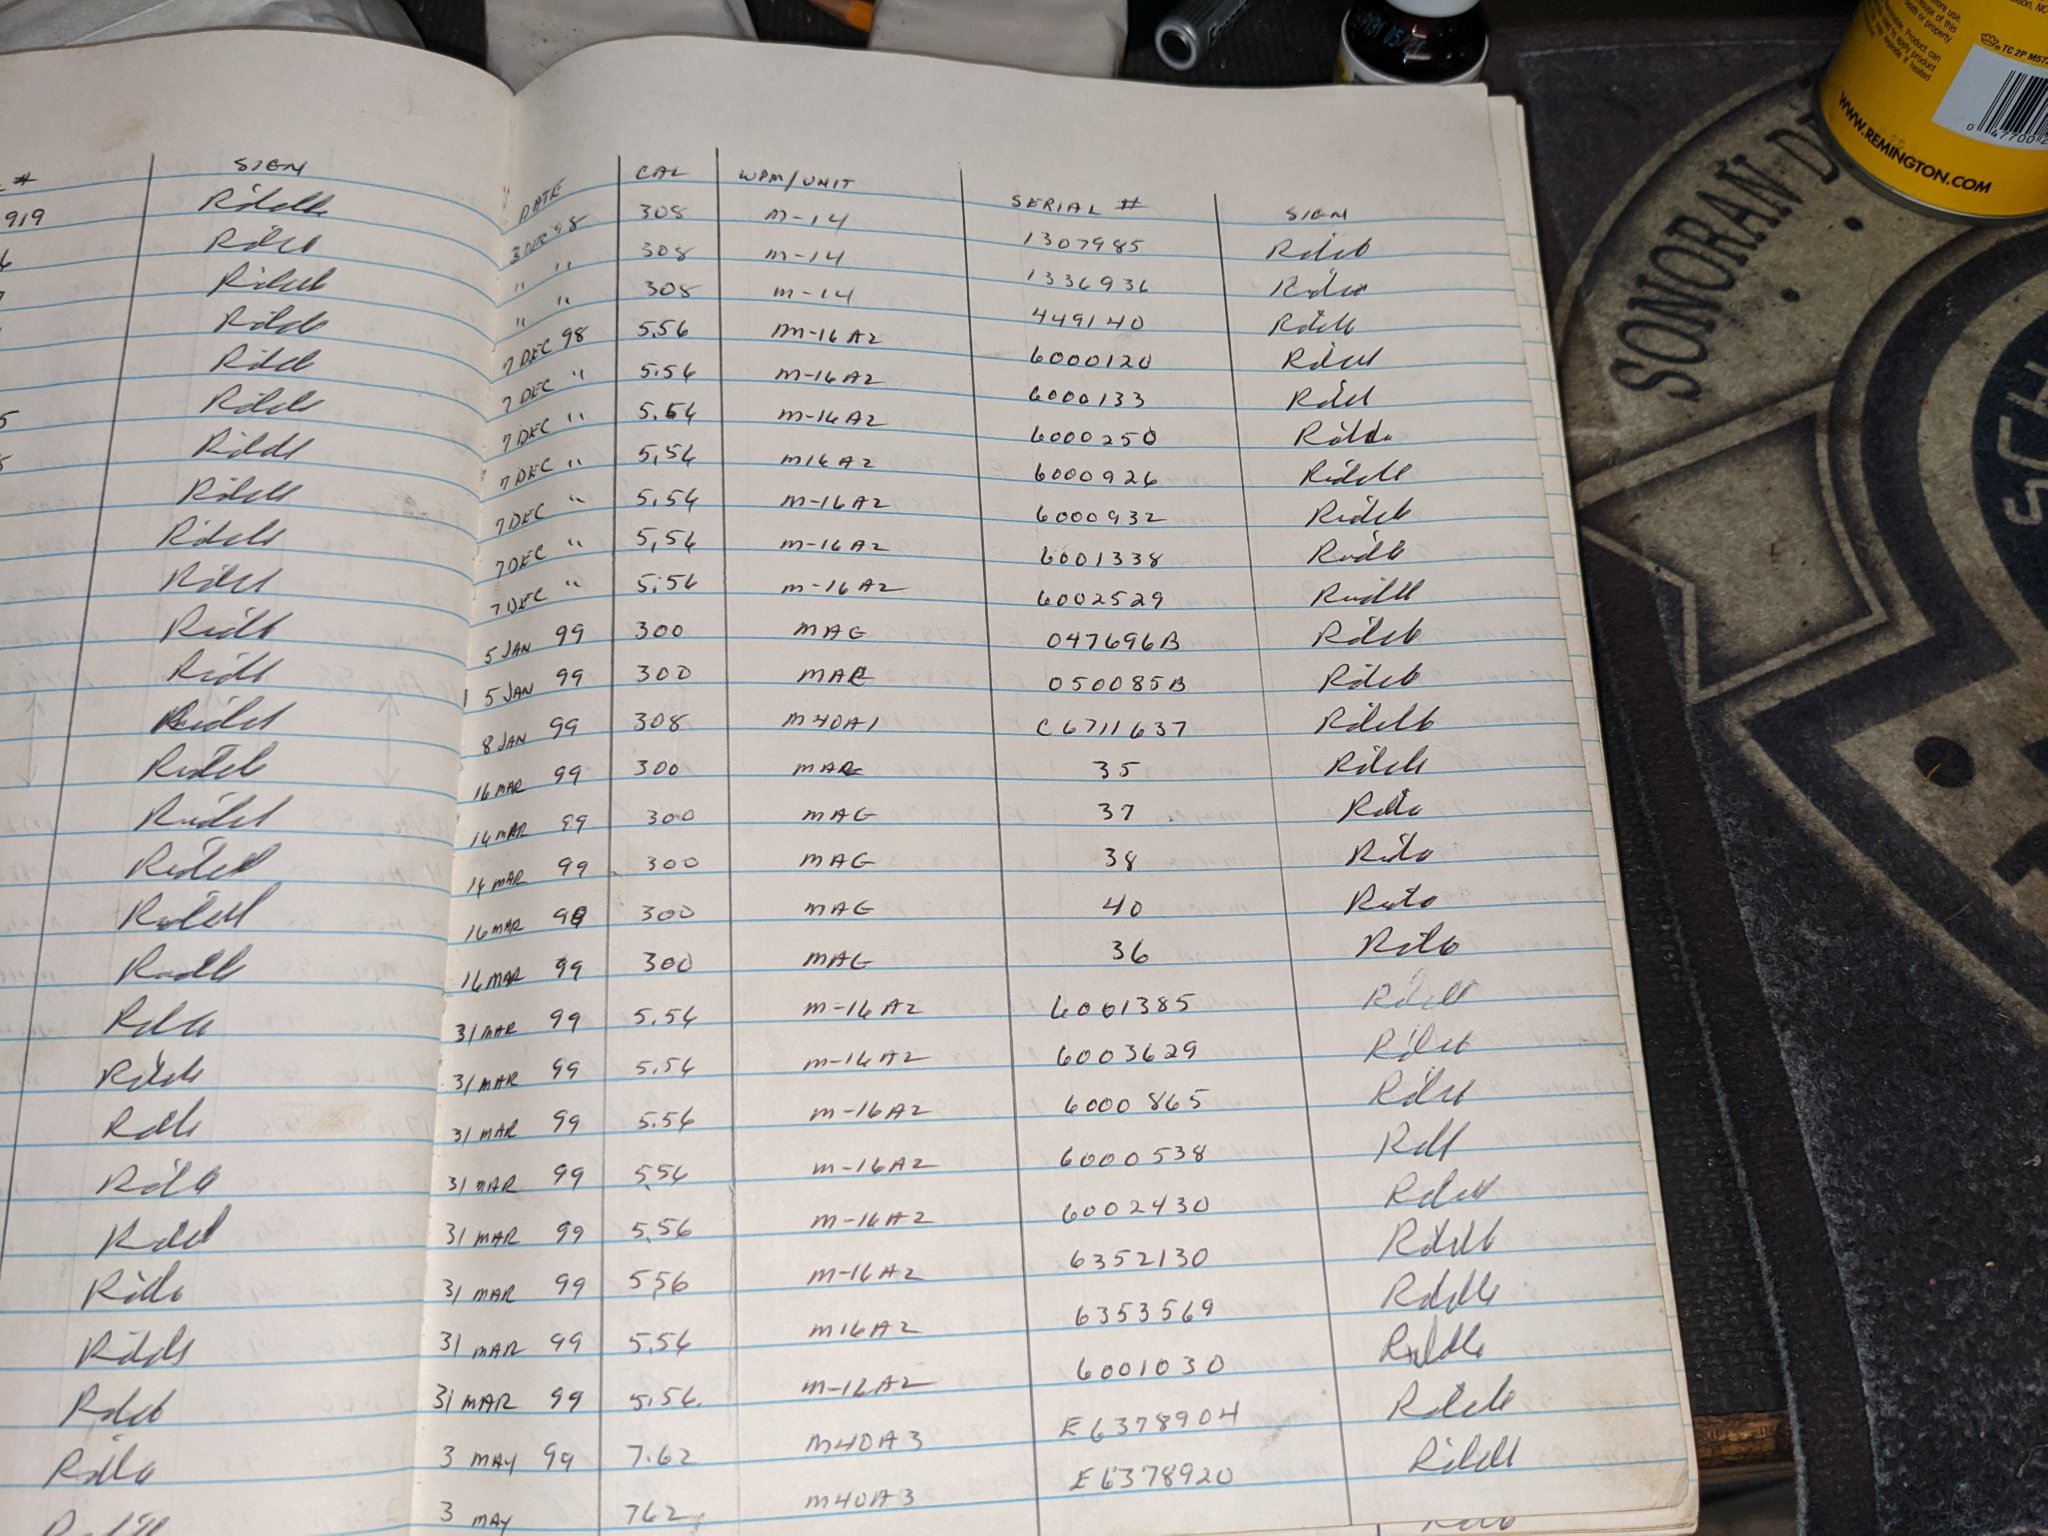 # SIGN
919
DATE CAL WPM/UNIT SERIAL # SIGN
3 DEC 98 308 M-14 1307985 Riddle
" " 308 M-14 1336936 Riddle
" " 308 M-14 449140 Riddle
7 DEC 98 5.56 M-16A2 6000120 Riddle
7 DEC " 5.56 M-16A2 6000133 Riddle
7 DEC " 5.56 M-16A2 6000250 Riddle
7 DEC " 5.56 M16A2 6000926 Riddle
7 DEC " 5.56 M-16A2 6000932 Riddle
7 DEC " 5.56 M-16A2 6001338 Riddle
7 DEC " 5.56 M-16A2 6002529 Riddle
5 JAN 99 300 MAG 047696B Riddle
5 JAN 99 300 MAG 050085B Riddle
8 JAN 99 308 M40A1 C6711637 Riddle
16 MAR 99 300 MAG 35 Riddle
16 MAR 99 300 MAG 37 Riddle
16 MAR 99 300 MAG 38 Riddle
16 MAR 99 300 MAG 40 Riddle
16 MAR 99 300 MAG 36 Riddle
31 MAR 99 5.56 M-16A2 6001385 Riddle
31 MAR 99 5.56 M-16A2 6003629 Riddle
31 MAR 99 5.56 M-16A2 6000865 Riddle
31 MAR 99 5.56 M-16A2 6000538 Riddle
31 MAR 99 5.56 M-16A2 6002430 Riddle
31 MAR 99 5.56 M-16A2 6352130 Riddle
31 MAR 99 5.56 M16A2 6353569 Riddle
31 MAR 99 5.56 M-16A2 6001030 Riddle
3 MAY 99 7.62 M40A3 E6378904 Riddle
3 MAY 762 M40A3 E6378920 Riddle
SONORAN
WWW.REMINGTON.COM
TC 2P M57
Product can